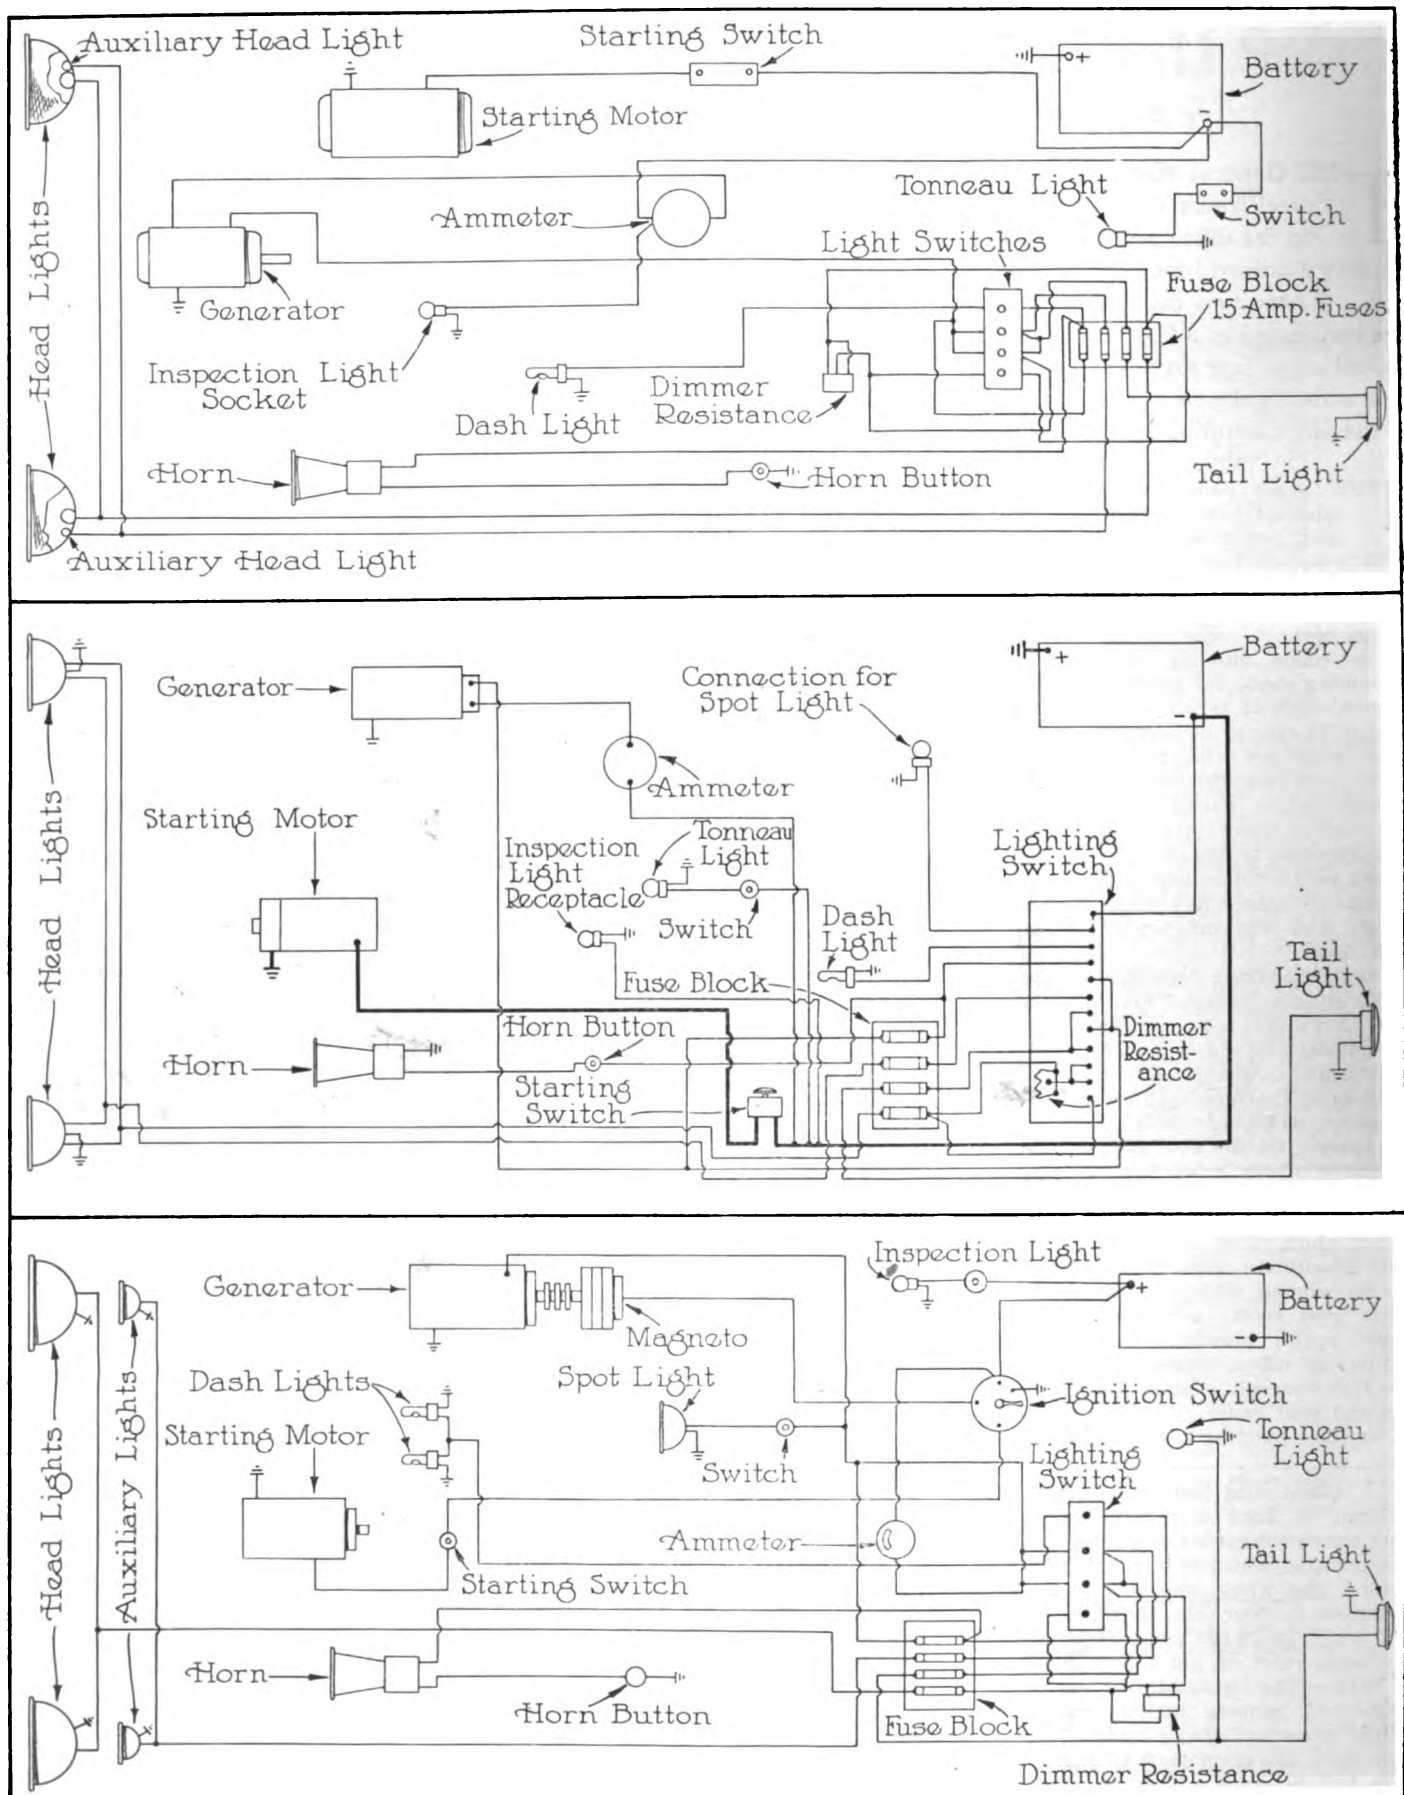 Auxiliary Head Light
Starting Switch
+
Battery
-
Starting Motor
Head Lights
Ammeter
Tonneau Light
Switch
Light Switches
Generator
Fuse Block
15 Amp. Fuses
Inspection Light
Socket
Dash Light
Dimmer
Resistance
Tail Light
Horn
Horn Button
Auxiliary Head Light
Generator
Connection for
Spot Light
Battery
+
-
Ammeter
Head Lights
Starting Motor
Inspection
Light
Receptacle
Tonneau
Light
Switch
Dash
Light
Lighting
Switch
Fuse Block
Tail
Light
Horn Button
Horn
Starting
Switch
Dimmer
Resist-
ance
Generator
Magneto
Inspection Light
+
-
Battery
Dash Lights
Spot Light
Ignition Switch
Starting Motor
Switch
Tonneau
Light
Lighting
Switch
Head Lights
Auxiliary Lights
Ammeter
Starting Switch
Tail Light
Horn
Horn Button
Fuse Block
Dimmer Resistance